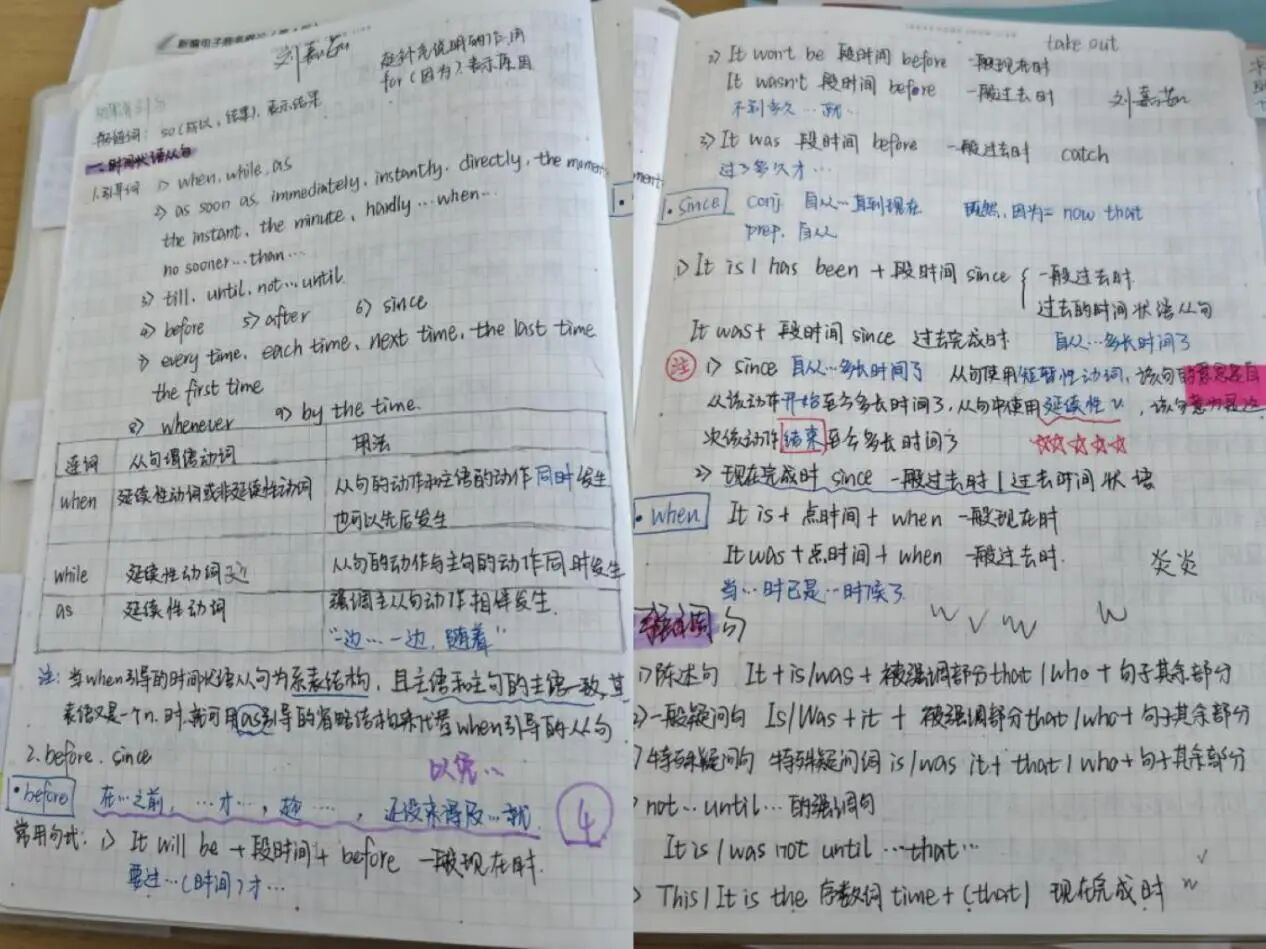 刘嘉茹
起补充说明的作用
for(因为)表示原因
so(所以,结果),表示结果
一.时间状语从句
1.引导词 1) when, while, as
2) as soon as, immediately, instantly, directly, the moment,
the instant, the minute, hardly…when…
no sooner…than…
3) till, until, not…until
4) before 5) after 6) since
7) every time, each time, next time, the last time
the first time
8) whenever 9) by the time.
连词 从句谓语动词 用法
when 延续性动词或非延续性动词 从句的动作和主语的动作同时发生
也可以先后发生
while 延续性动词 从句的动作与主句的动作同时发生
as 延续性动词 强调主从句动作相伴发生.
"一边…一边,随着"
注:当when引导的时间状语从句为系表结构,且主语和主句的主语一致,其
表语又是一个n.时,就可用as引导的省略结构来代替when引导的从句
2.before, since
以免…
·before 在…之前,…才…,趁……,还没来得及…就 4
常用句式:1) It will be + 段时间 + before 一般现在时.
要过…(时间)才…
take out
2) It won't be 段时间 before 一般现在时
It wasn't 段时间 before 一般过去时 刘嘉茹
不到多久…就…
3) It was 段时间 before 一般过去时 catch
过了多久才…
·since conj. 自从…直到现在 既然,因为= now that
prep. 自从
1) It is / has been + 段时间 since { 一般过去时
过去的时间状语从句
It was + 段时间 since 过去完成时 自从…多长时间了
注 1) since 自从…多长时间了 从句使用短暂性动词,该句的意思是自
从该动作开始至今多长时间了,从句中使用延续性v.,该句意为
次该动作结束至今多长时间了 ☆☆☆☆☆
2) 现在完成时 since 一般过去时 / 过去时间状语
·when It is + 点时间 + when 一般现在时
It was + 点时间 + when 一般过去时.
当…时已是…时候了 炎炎
强调句
1) 陈述句 It + is/was + 被强调部分that / who + 句子其余部分
2) 一般疑问句 Is/Was + it + 被强调部分that / who + 句子其余部分
) 特殊疑问句 特殊疑问词 is/was it + that / who + 句子其余部分
) not…until…的强调句
It is / was not until …that…
) This / It is the 序数词 time + (that) 现在完成时